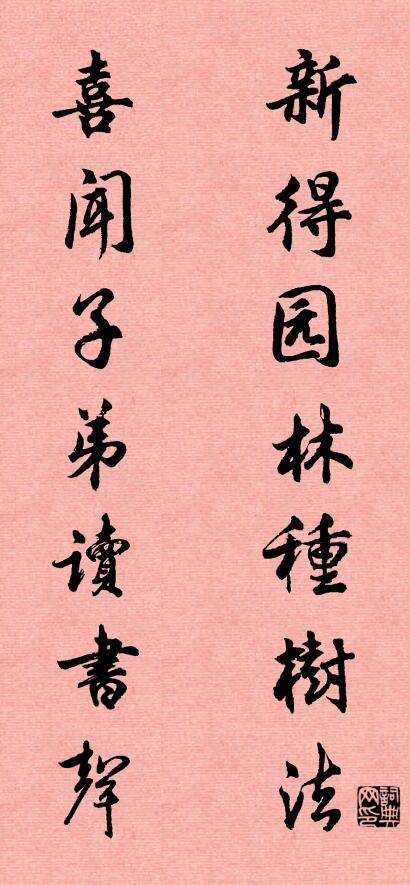 新得园林種樹法
喜闻子弟讀書聲
詞典网印